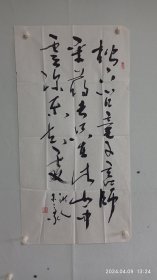 松下問童子言師
采藥去只在此山中
雲深不知處
2024.04.09 13:24